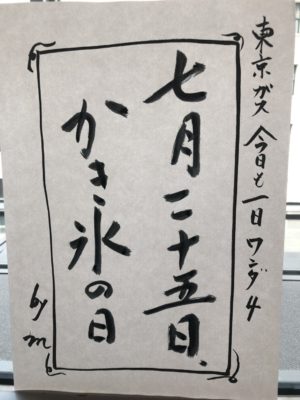 東京ガス 今日も一日ワンダ4
七月二十五日、
かき氷の日
by m